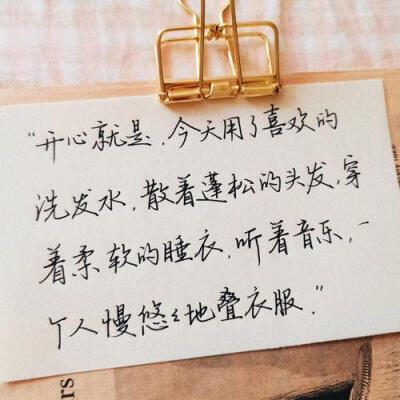 “开心就是，今天用了喜欢的
洗发水，散着蓬松的头发，穿
着柔软的睡衣，听着音乐，一
个人慢悠々地叠衣服。”
rs